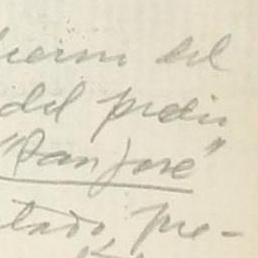 del
del predio
"San José"
tado, pre-